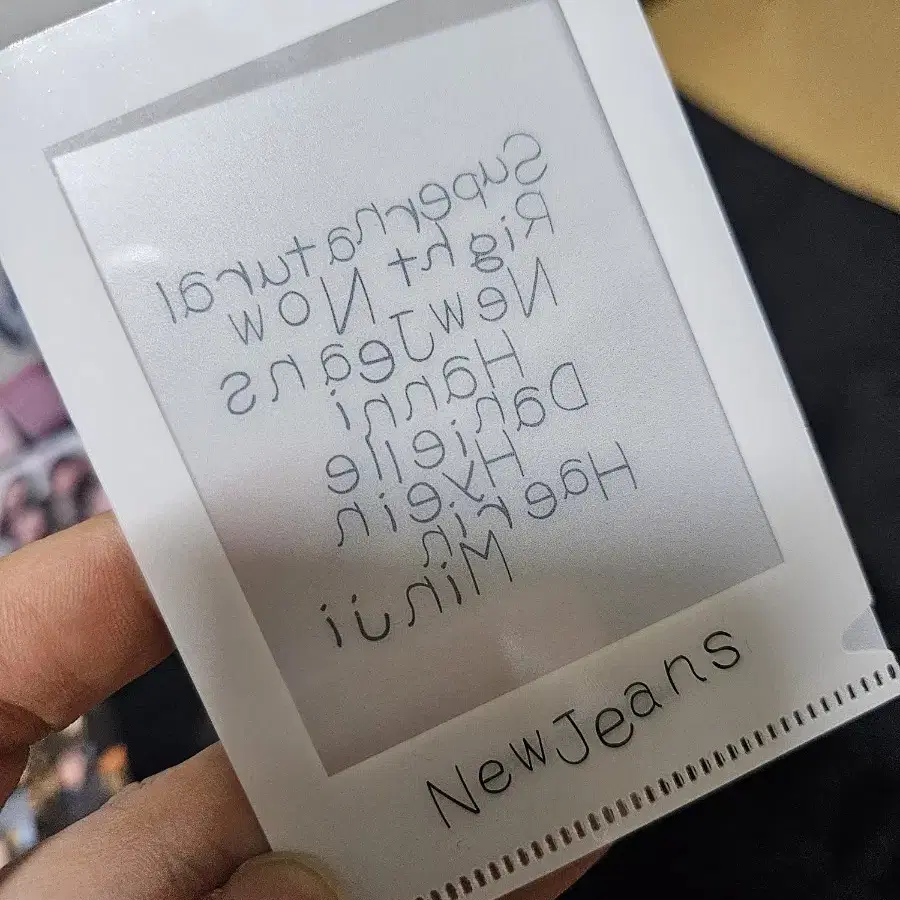 Supernatural
Right Now
NewJeans
Hanni
Danielle
Hyein
Haerin
Minji
NewJeans